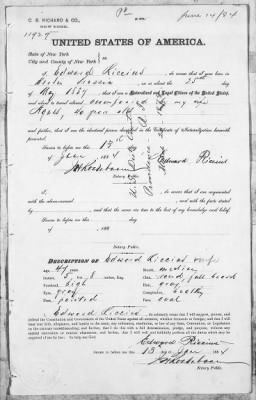 C. B. RICHARD & CO.
NEW YORK.
June 14/84
11927
UNITED STATES OF AMERICA.
State of New York
City and County of New York
I, Edward Riccius, do swear that I was born in
Prussia on the 25 day
of May 1837
and legal Citizen of the United States,
and about to travel abroad accompanied by my wife
Agnes, 40 years old
and further, that I am the identical person described in the Certificate of Naturalization herewith
presented.
Sworn to before me this 13 day
of June 1884
Edward Riccius
Notary Public.
I, do swear that I am acquainted
with the above-named and with the facts stated
by and that the same are true to the best of my knowledge and belief.
Sworn to before me this day
of 188
Notary Public.
DESCRIPTION OF Edward Riccius
Age, 47 years
Mouth, medium
Stature, 5 8 inches, Eng.
Chin, round, full beard
Forehead, high
Hair, gray
Eyes, gray
Complexion, healthy
Nose, pointed
Face, oval
I, Edward Riccius, do solemnly swear that I will support, protect
and defend the Constitution and Government of the United States against all enemies, whether domestic or foreign; and that I will
bear true faith, allegiance, and loyalty to the same, any ordinance, resolution, or law of any State, Convention, or Legislature
to the contrary notwithstanding; and further, that I do this with a full determination, pledge, and purpose, without any
mental reservation or evasion whatsoever; and further, that I will well and faithfully perform all the duties which may be
required of me by law. So help me God.
Edward Riccius
Sworn to before me, this 13 day June 1884
Notary Public.